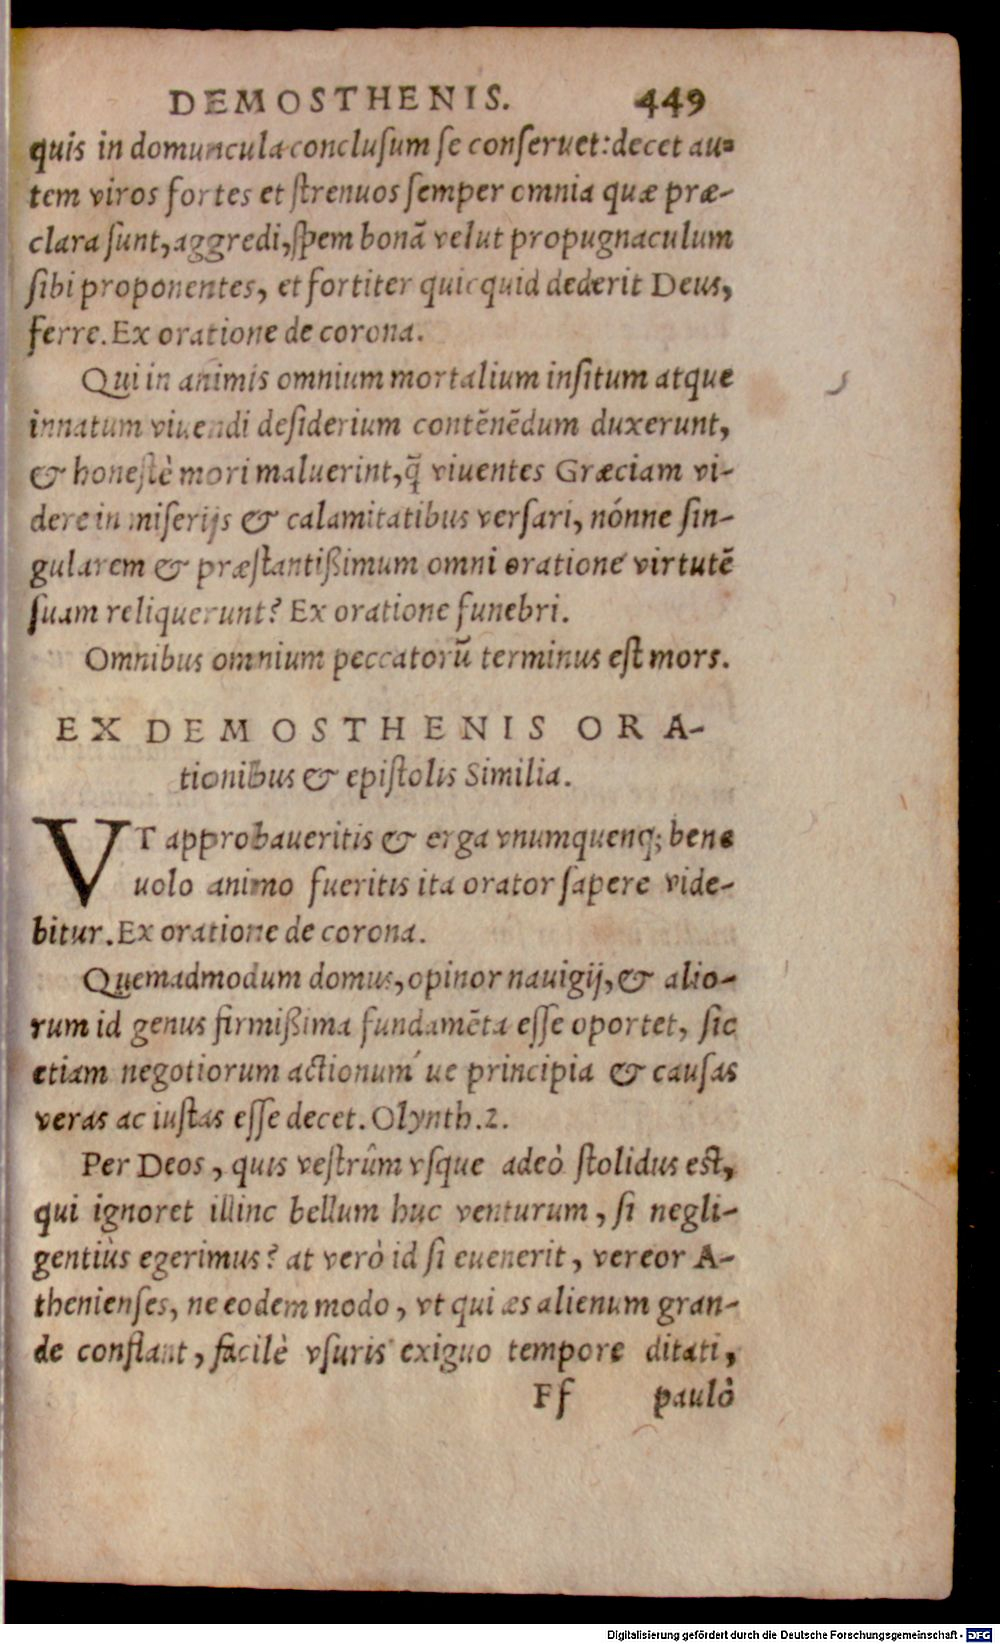 DEMOSTHENIS. 449
quis in domuncula conclusum se conseruet: decet au=
tem viros fortes et strenuos semper omnia quæ præ-
clara sunt, aggredi, spem bonã velut propugnaculum
sibi proponentes, et fortiter quicquid dederit Deus,
ferre. Ex oratione de corona.
Qui in animis omnium mortalium insitum atque
innatum viuendi desiderium contẽnẽdum duxerunt,
& honestè mori maluerint, q̃ viuentes Græciam vi-
dere in miserijs & calamitatibus versari, nónne sin-
gularem & præstantißimum omni oratione virtutẽ
suam reliquerunt? Ex oratione funebri.
Omnibus omnium peccatorũ terminus est mors.
EX DEMOSTHENIS ORA-
tionibus & epistolis Similia.
VT approbaueritis & erga vnumquenq; bene
uolo animo fueritis ita orator sapere vide-
bitur. Ex oratione de corona.
Quemadmodum domus, opinor nauigij, & alio-
rum id genus firmißima fundamẽta esse oportet, sic
etiam negotiorum actionum´ ue principia & causas
veras ac iustas esse decet. Olynth. 2.
Per Deos, quis vestrûm vsque adeò stolidus est,
qui ignoret illinc bellum huc venturum, si negli-
gentiùs egerimus? at verò id si euenerit, vereor A-
thenienses, ne eodem modo, vt qui æs alienum gran-
de conflant, facilè vsuris exiguo tempore ditati,
Ff paulò
Digitalisierung gefördert durch die Deutsche Forschungsgemeinschaft - DFG